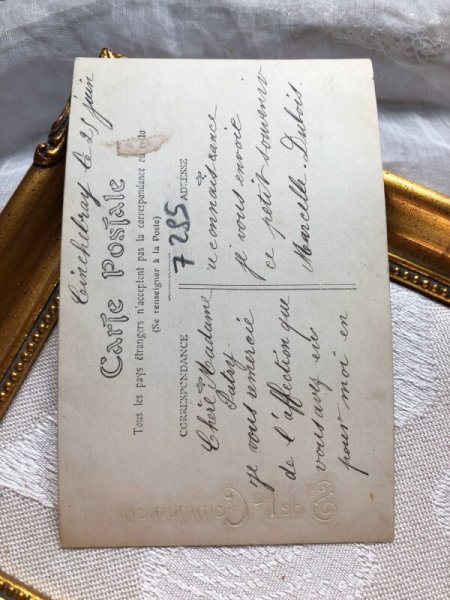 Tinchebray le 25 juin
Carte Postale
Tous les pays étrangers n'acceptent pas la correspondance au
(Se renseigner à la Poste)
CORRESPONDANCE
ADRESSE
7285
Chère Madame
Patry
je vous remercie
de l'affection que
vous avez eu
pour moi en
reconnaissance
je vous envoie
ce petit souvenir
Marcelle. Dubois